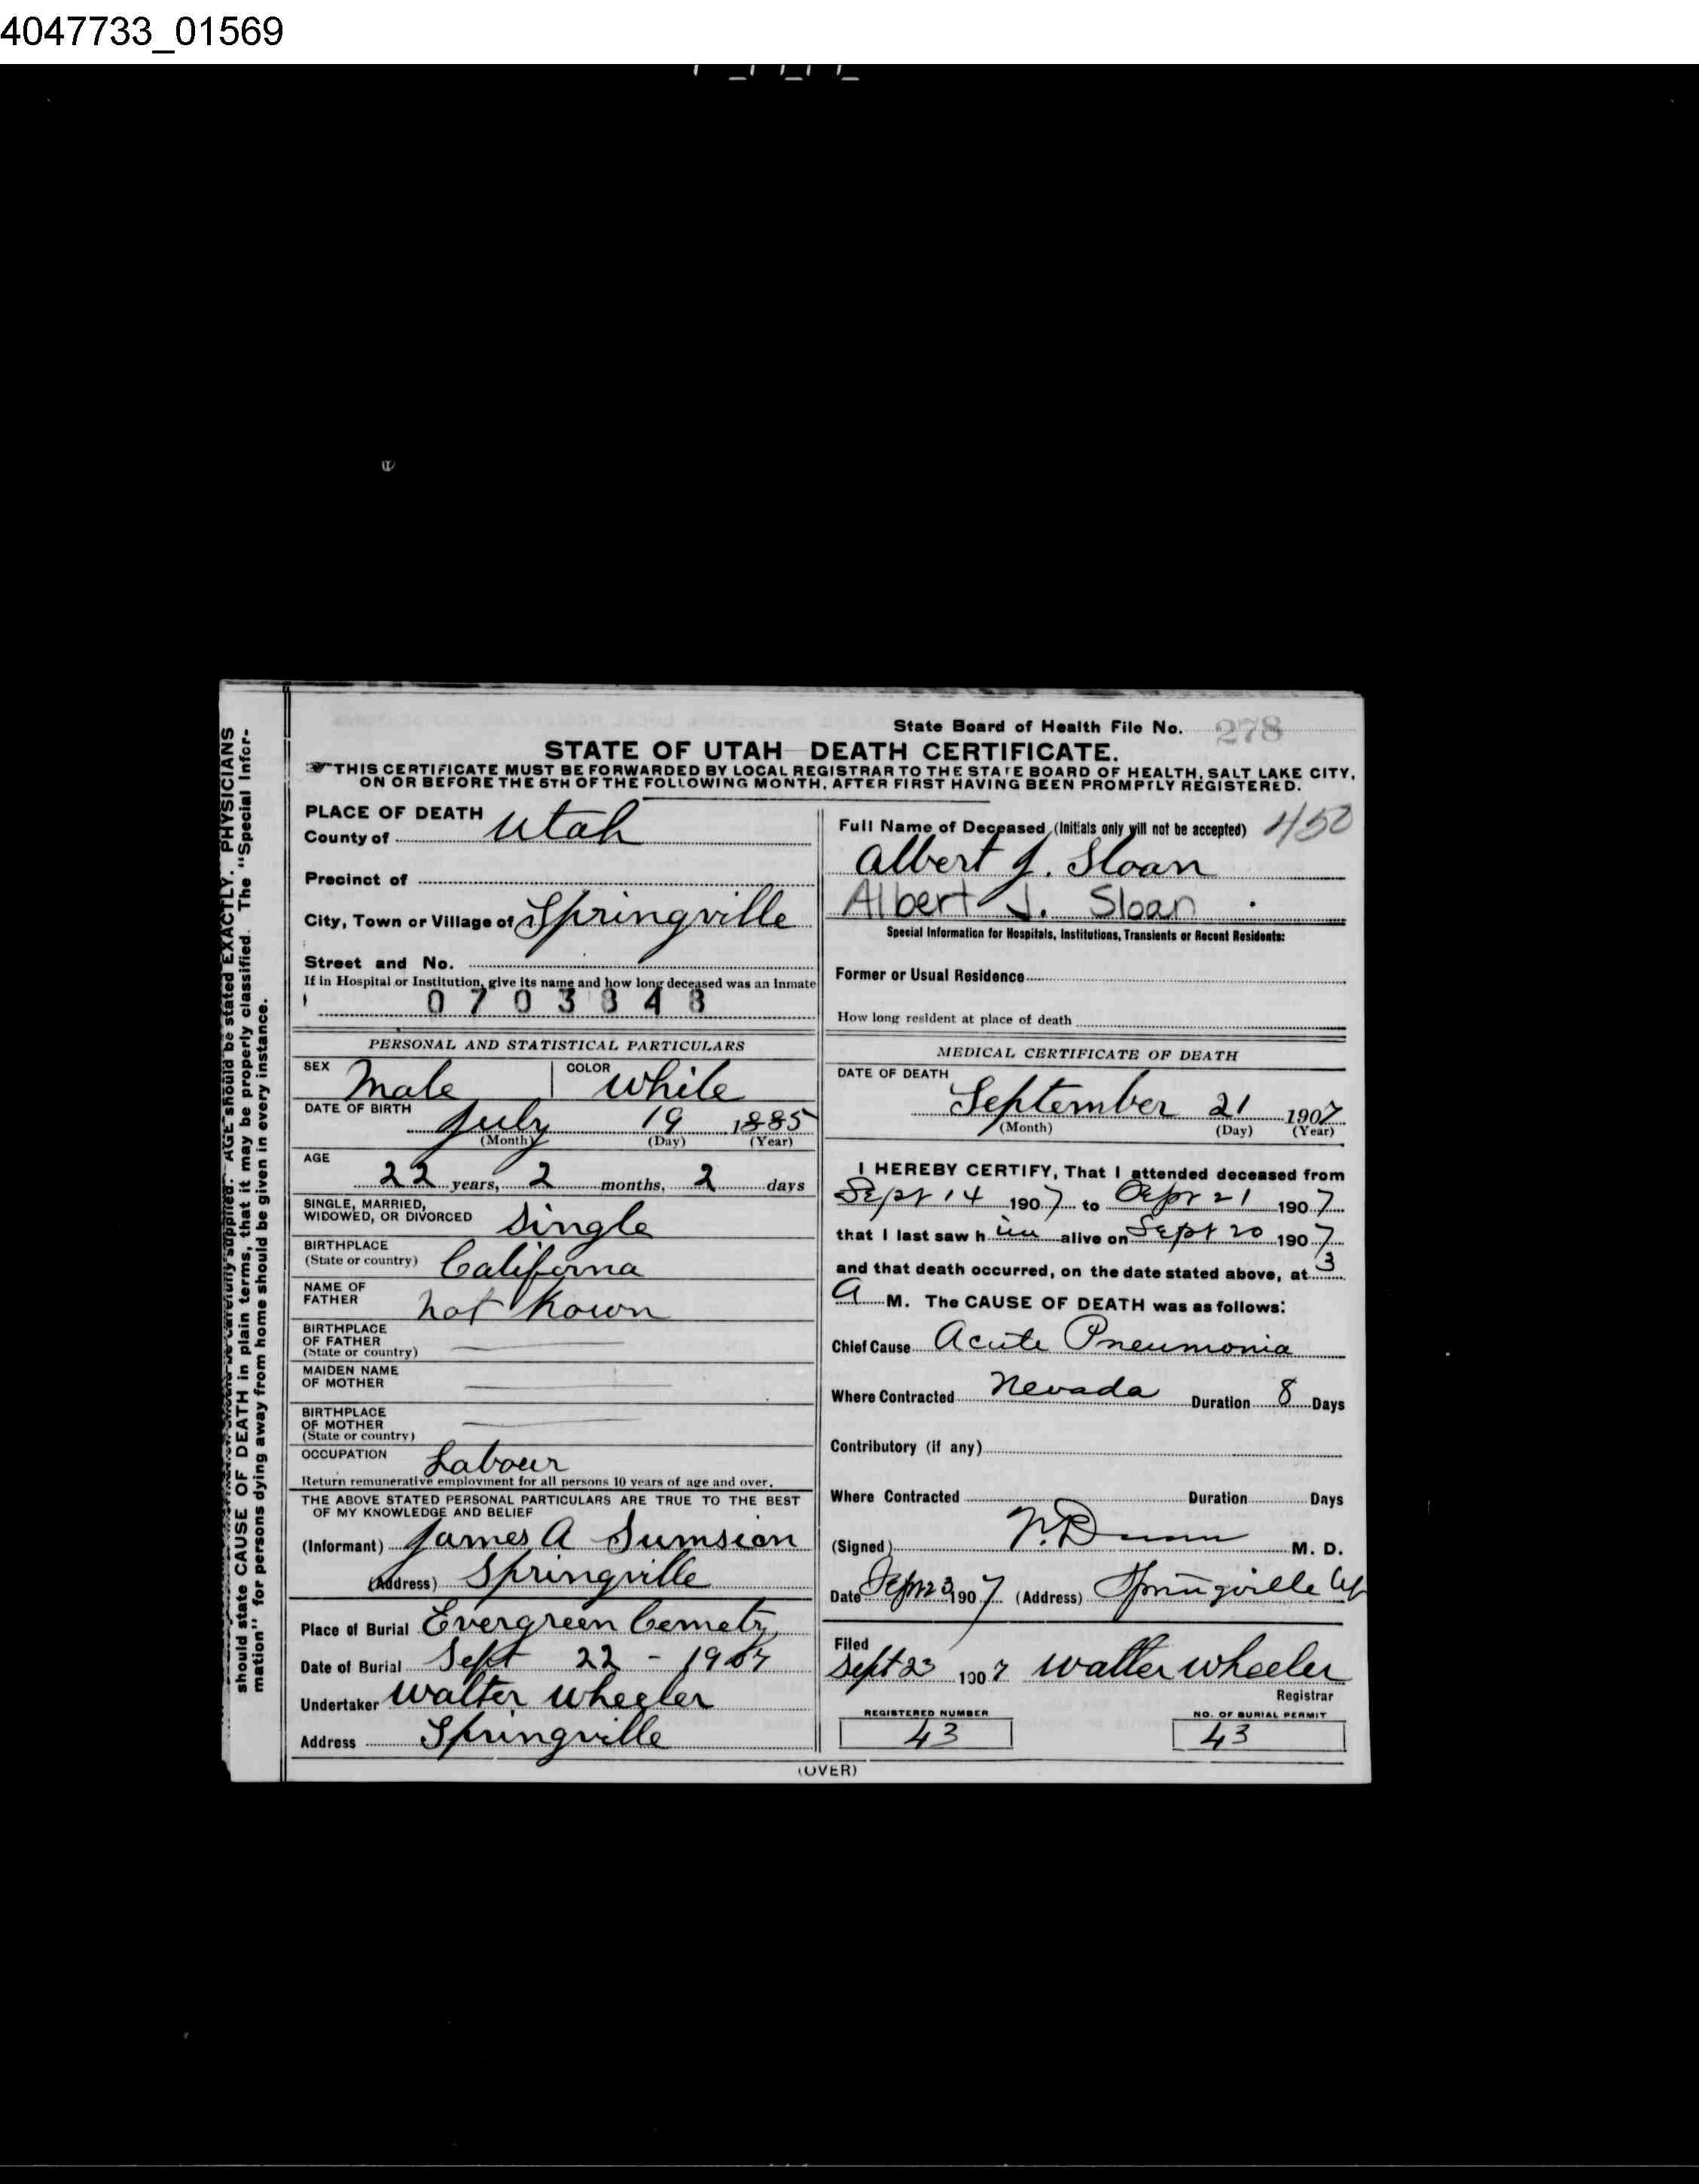 4047733_01569
State Board of Health File No. 278
STATE OF UTAH—DEATH CERTIFICATE.
THIS CERTIFICATE MUST BE FORWARDED BY LOCAL REGISTRAR TO THE STATE BOARD OF HEALTH, SALT LAKE CITY,
ON OR BEFORE THE 5TH OF THE FOLLOWING MONTH, AFTER FIRST HAVING BEEN PROMPTLY REGISTERED.
PLACE OF DEATH
County of Utah
Precinct of
City, Town or Village of Springville
Street and No.
If in Hospital or Institution, give its name and how long deceased was an Inmate
0703348
PERSONAL AND STATISTICAL PARTICULARS
SEX Male COLOR White
DATE OF BIRTH July 19 1885
(Month) (Day) (Year)
AGE
22 years, 2 months, 2 days
SINGLE, MARRIED,
WIDOWED, OR DIVORCED Single
BIRTHPLACE
(State or country) Californa
NAME OF
FATHER not Kown
BIRTHPLACE
OF FATHER
(State or country)
MAIDEN NAME
OF MOTHER
BIRTHPLACE
OF MOTHER
(State or country)
OCCUPATION Labour
Return remunerative employment for all persons 10 years of age and over.
THE ABOVE STATED PERSONAL PARTICULARS ARE TRUE TO THE BEST
OF MY KNOWLEDGE AND BELIEF
(Informant) James A Sumsion
(Address) Springville
Place of Burial Evergreen Cemetry
Date of Burial Sept 22 - 1907
Undertaker Walter Wheeler
Address Springville
Full Name of Deceased (Initials only will not be accepted) 450
Albert J. Sloan
Albert J. Sloan
Special Information for Hospitals, Institutions, Transients or Recent Residents:
Former or Usual Residence
How long resident at place of death
MEDICAL CERTIFICATE OF DEATH
DATE OF DEATH
September 21 1907
(Month) (Day) (Year)
I HEREBY CERTIFY, That I attended deceased from
Sept 14 1907 to Sept 21 1907
that I last saw him alive on Sept 20 1907
and that death occurred, on the date stated above, at 3
A M. The CAUSE OF DEATH was as follows:
Chief Cause Acute Pneumonia
Where Contracted Nevada Duration 8 Days
Contributory (if any)
Where Contracted Duration Days
(Signed) Dunn M. D.
Date Sept 23 1907 (Address) Springville
Filed
Sept 23 1907 Walter Wheeler
Registrar
REGISTERED NUMBER NO. OF BURIAL PERMIT
43 43
(OVER)
AGE should be stated EXACTLY. PHYSICIANS
should state CAUSE OF DEATH in plain terms, that it may be properly classified. The "Special Infor-
mation" for persons dying away from home should be given in every instance.